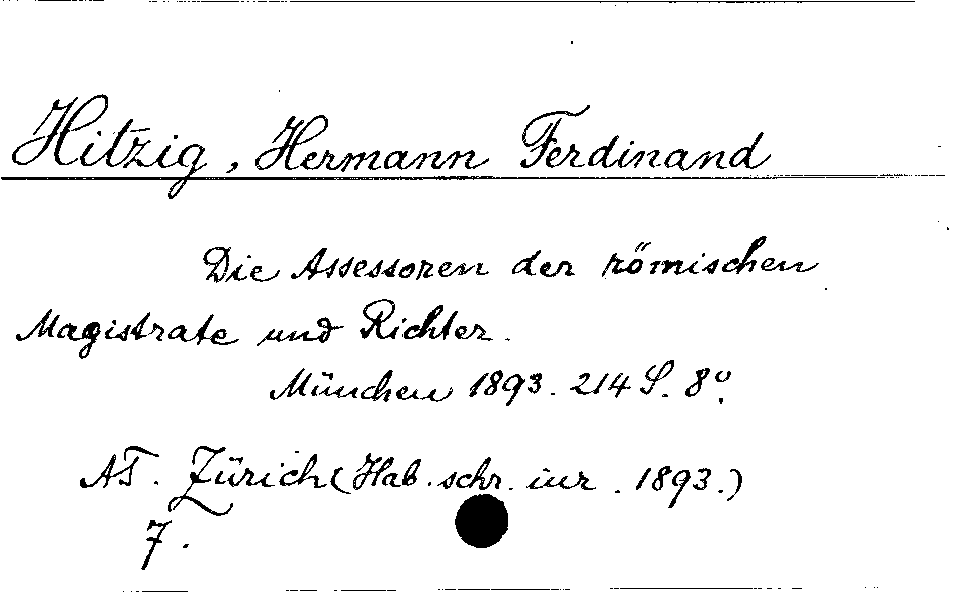 Hitzig, Hermann Ferdinand
Die Assessoren der römischen
Magistrate und Richter.
München 1893. 214 S. 8º.
AT. Zürich (Hab. schr. iur. 1893.)
7.